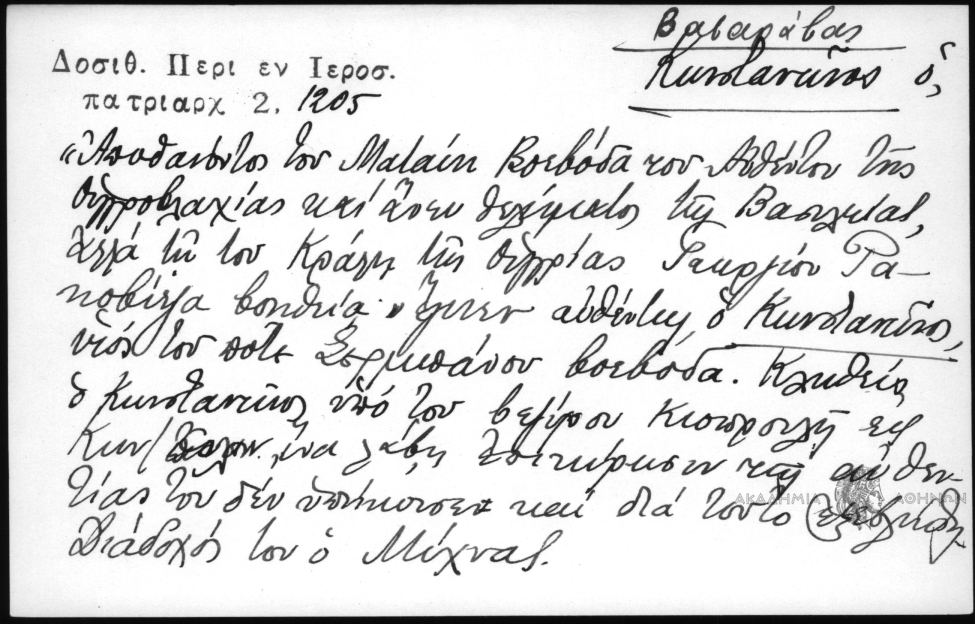 Βασαράβας
Κωνσταντῖνος ὁ,
Δοσιθ. Περι εν Ιεροσ.
πατριαρχ 2, 1205
«Ἀποθανόντος τοῦ Ματαίη Βοεβόδα τοῦ Αὐθέντου τῆς
Οὑγγροβλαχίας καί ἄνευ θελήματος τῆς Βασιλείας,
ἀλλά τῇ τοῦ Κράλη τῆς Οὑγγρίας Γεωργίου Ρα-
κοβίτζα βοηθεία ἔγινεν αὐθέντης ὁ Κωνσταντῖνος,
υἱός τοῦ ποτέ Σερμπάνου βοεβόδα. Κληθείς
ὁ Κωνσταντῖνος ὑπό τοῦ βεζύρου Κιοπρουλῆ εἰς
Κων/ ἵνα λάβη ἐπικύρωσιν τῆς αὐθεν-
τίας του δέν ὑπήκουσε καί διά τοῦτο
Διάδοχός του ὁ Μίχνας.
ΑΚΑΔΗΜΙΑ ΑΘΗΝΩΝ